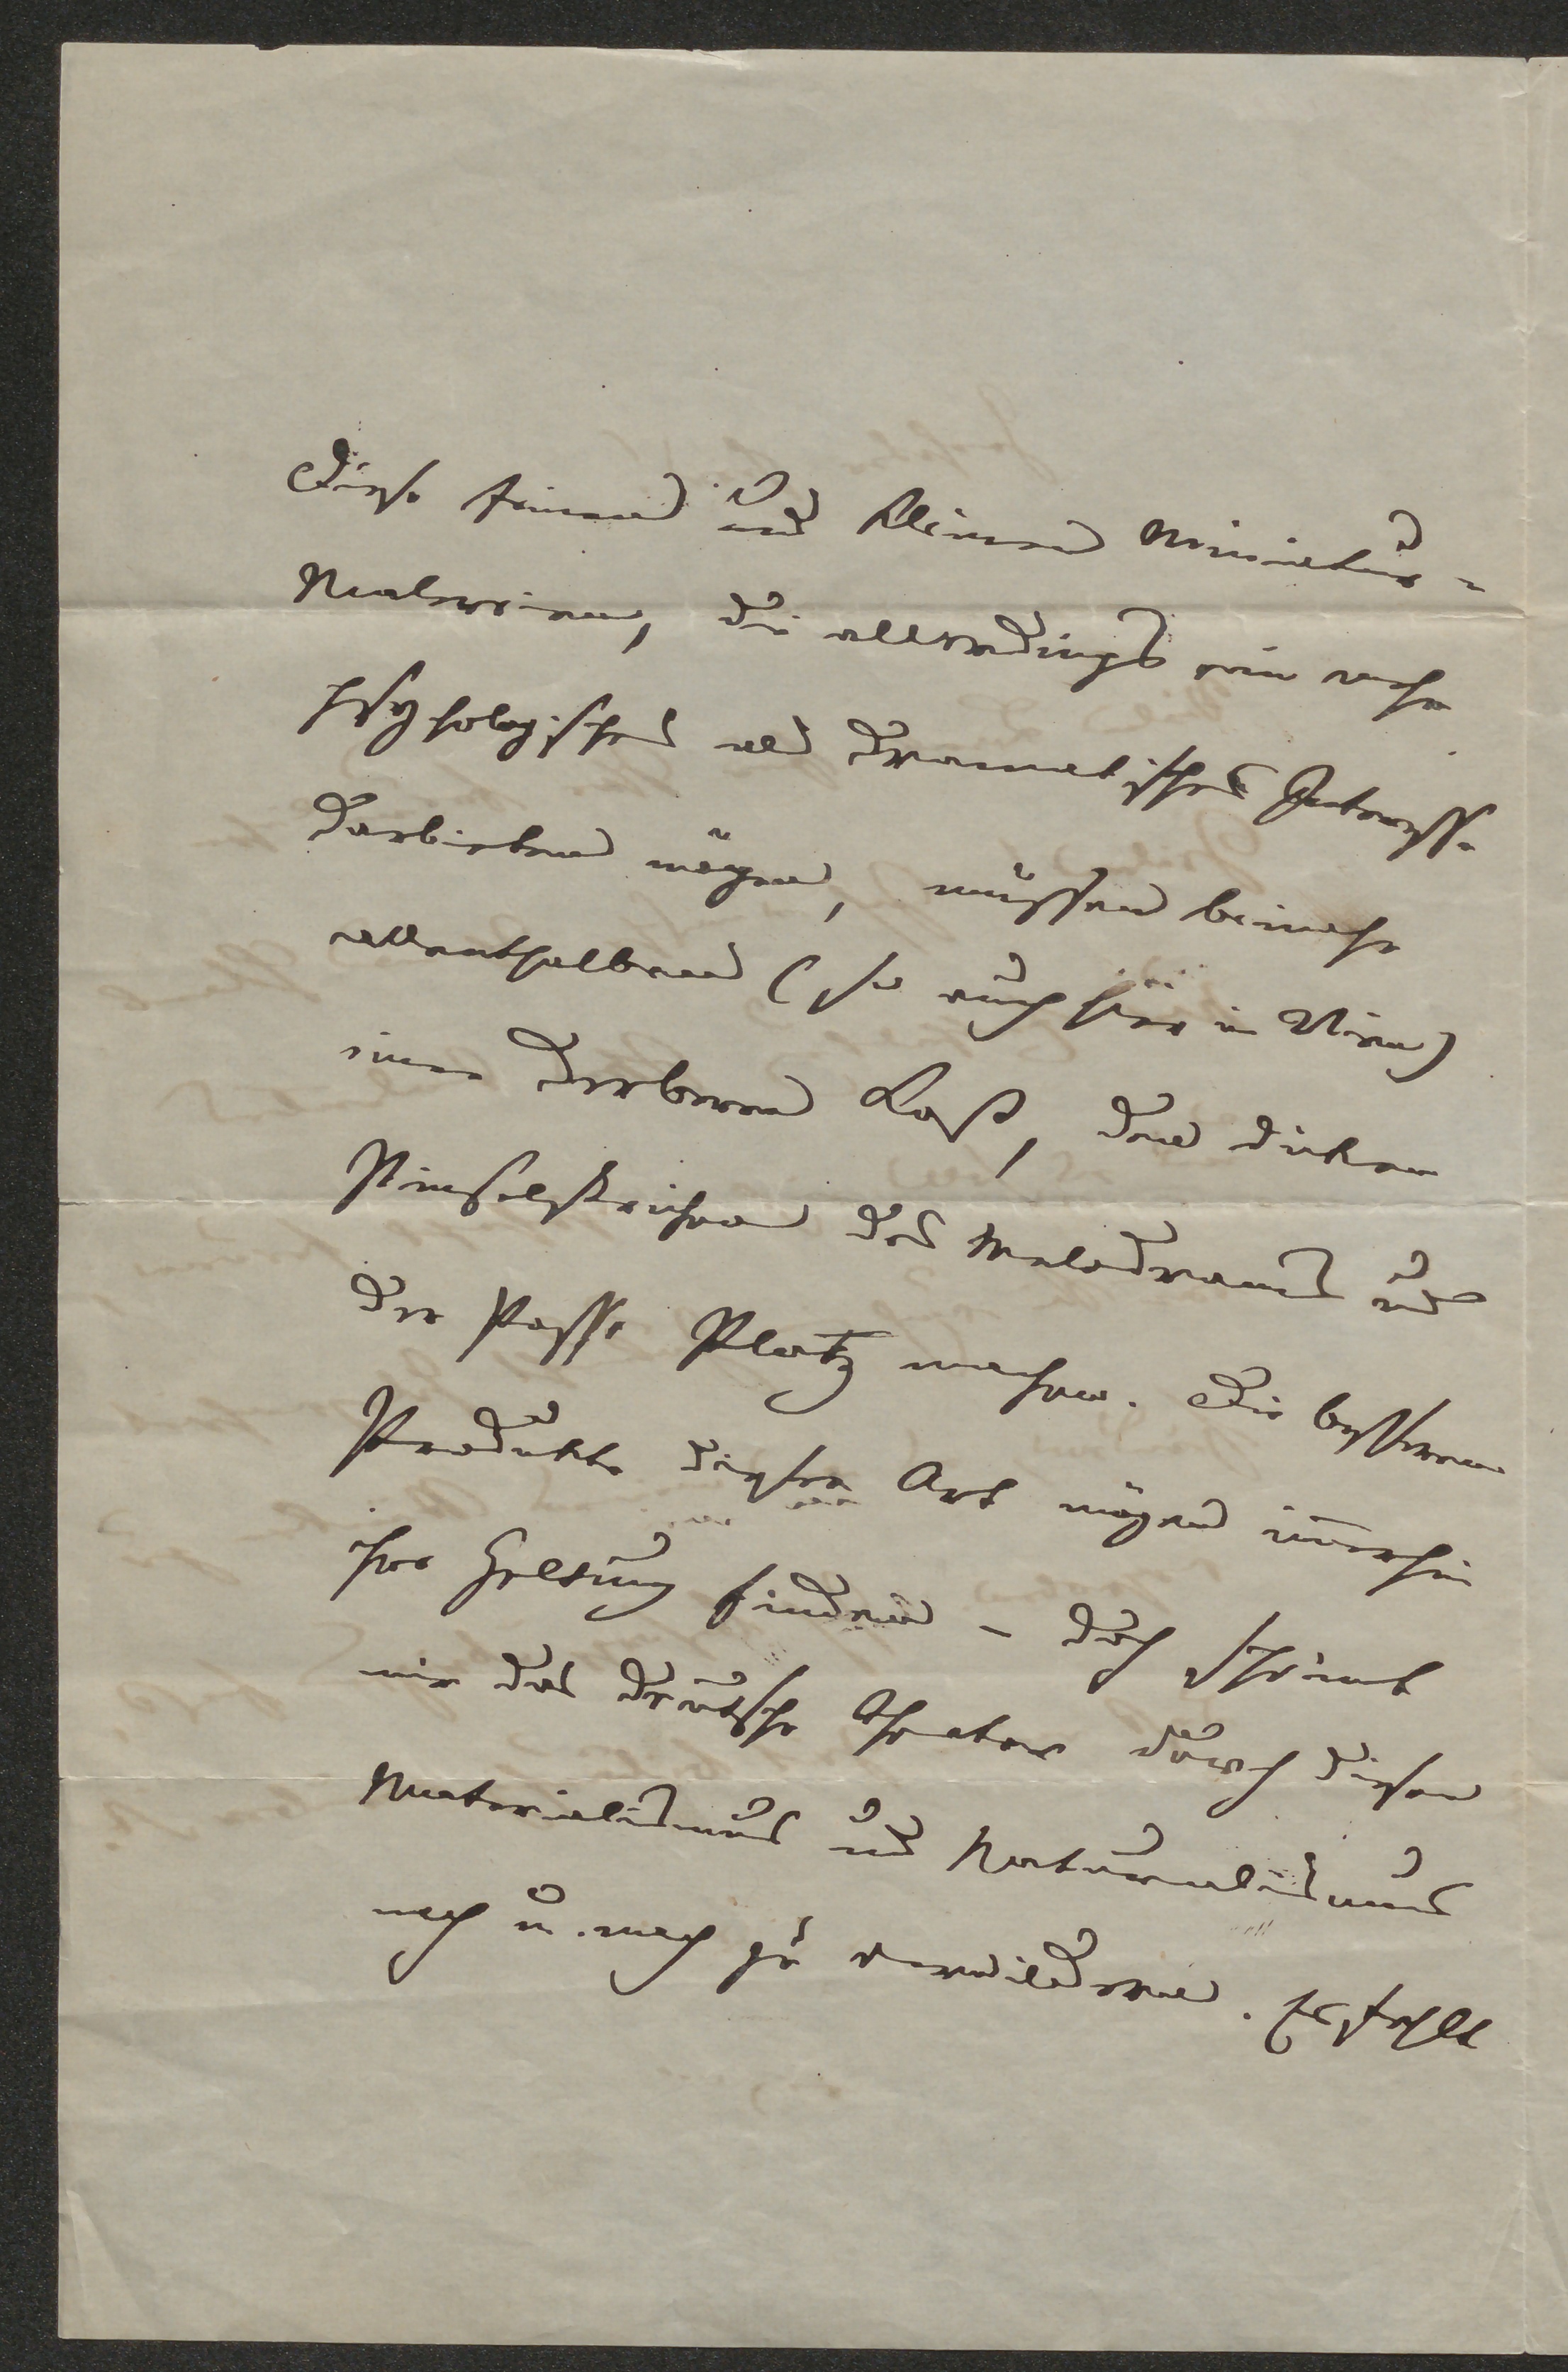 Diese feinen und kleinen Miniatur-
Malereien, die allerdings ein mehr
psychologisches als dramatisches Interesse
darbieten mögen, müssen beinahe
allenthalben (so auch hier in Wien)
einer derberen Kost, den dicken
Pinselstrichen des Melodrams und
der Posse Platz machen. Die besseren
Produkte dieser Art mögen im̄erhin
ihre Geltung finden – doch scheint
mir das deutsche Theater durch diesen
Materialismus und Naturalismus
nach u. nach zu verwildern. Es fehlt